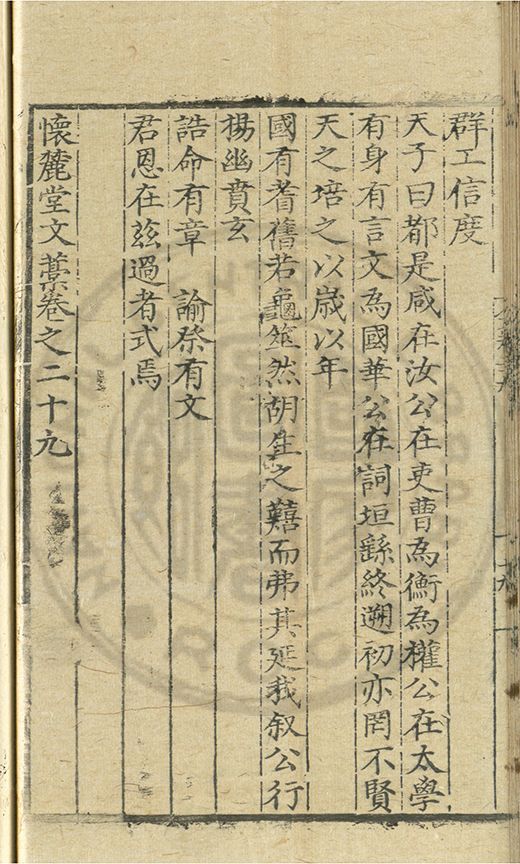 群工信度
天子曰都是咸在汝公在吏曹為衡為權公在太學
有身有言文為國華公在詞垣繇終遡初亦罔不賢
天之培之以歲以年
國有耆舊若龜筮然胡生之囏而弗其延我叙公行
揚幽賁玄
誥命有章 諭祭有文
君恩在茲過者式焉
懷麓堂文藁卷之二十九